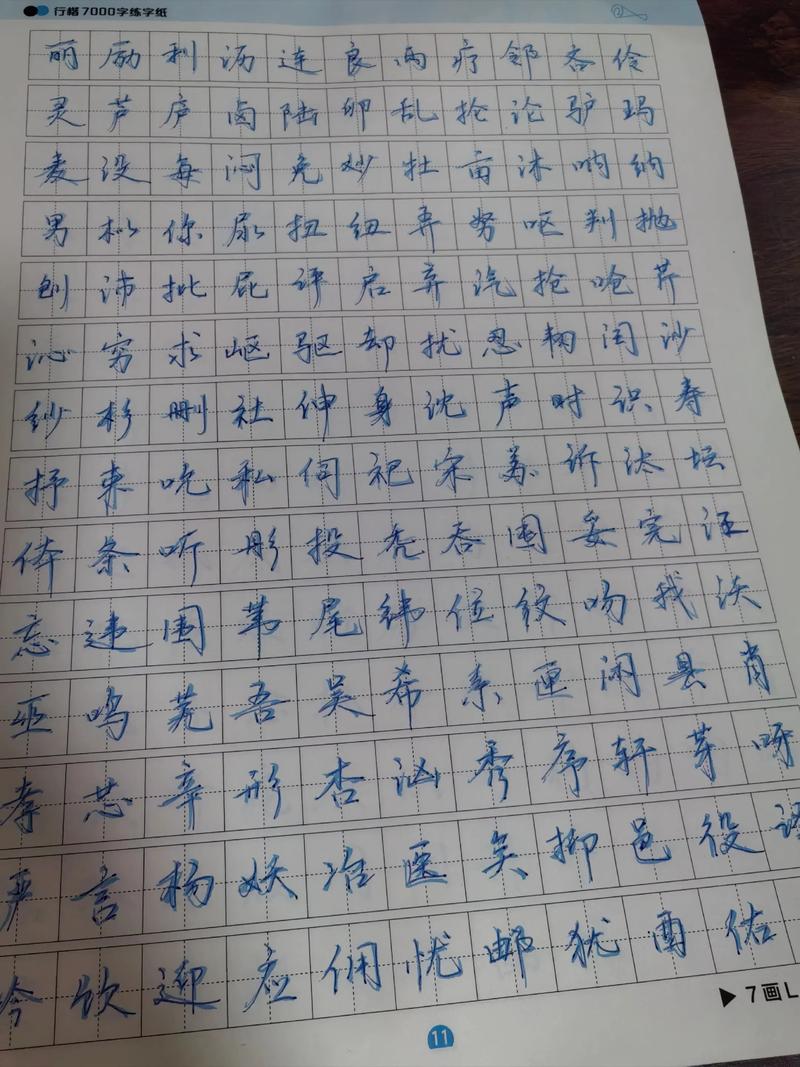 行楷7000字练字纸
丽励利沥连良两疗邻吝伶
灵芦庐卤陆卵乱抡论驴玛
麦没每闷免妙牡亩沐呐纳
男你尿扭纽弄努呕判抛
刨沛批屁评启弃汽抢呛芹
沁穷求岖驱却扰忍韧闰沙
纱杉删社伸身沈声时识寿
抒束吮私伺祀宋苏诉汰坛
体条听彤投秃吞囤妥完汪
忘违围苇尾纬位纹吻我沃
巫呜芜吾吴希系匣闲县肖
孝芯辛形杏汹秀序轩芽呀
严言杨妖冶医矣抑邑役译
吟饮迎应佣忧邮犹酉佑
▶7画L
11